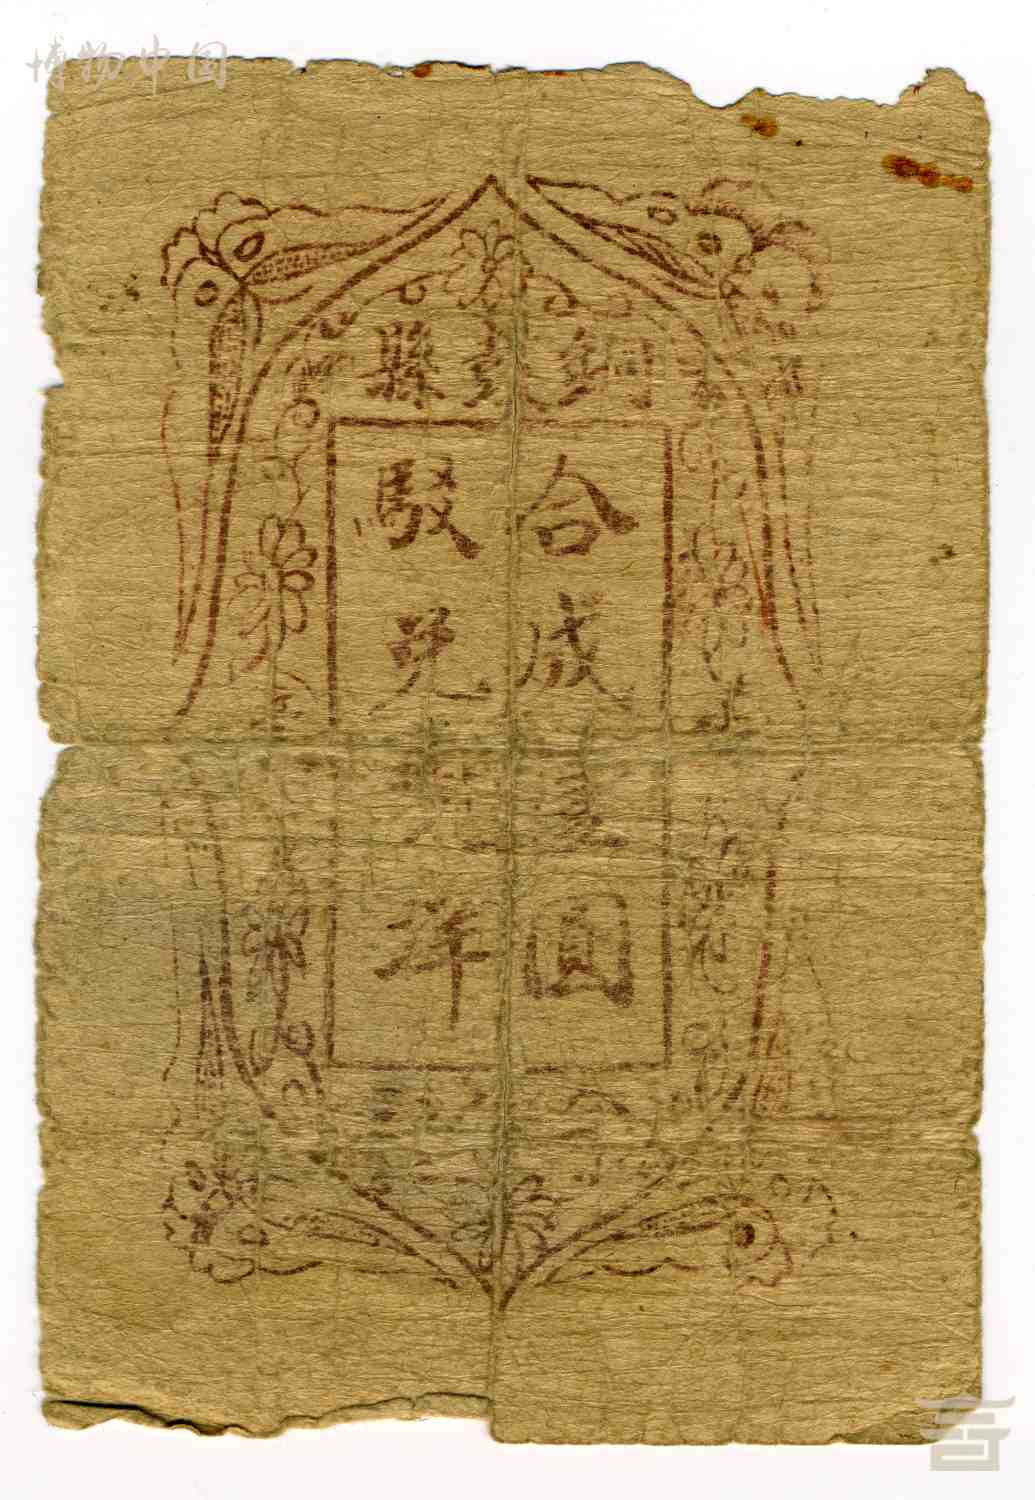 博物中国
銅鼓縣
合成壹圓
駁兌光洋